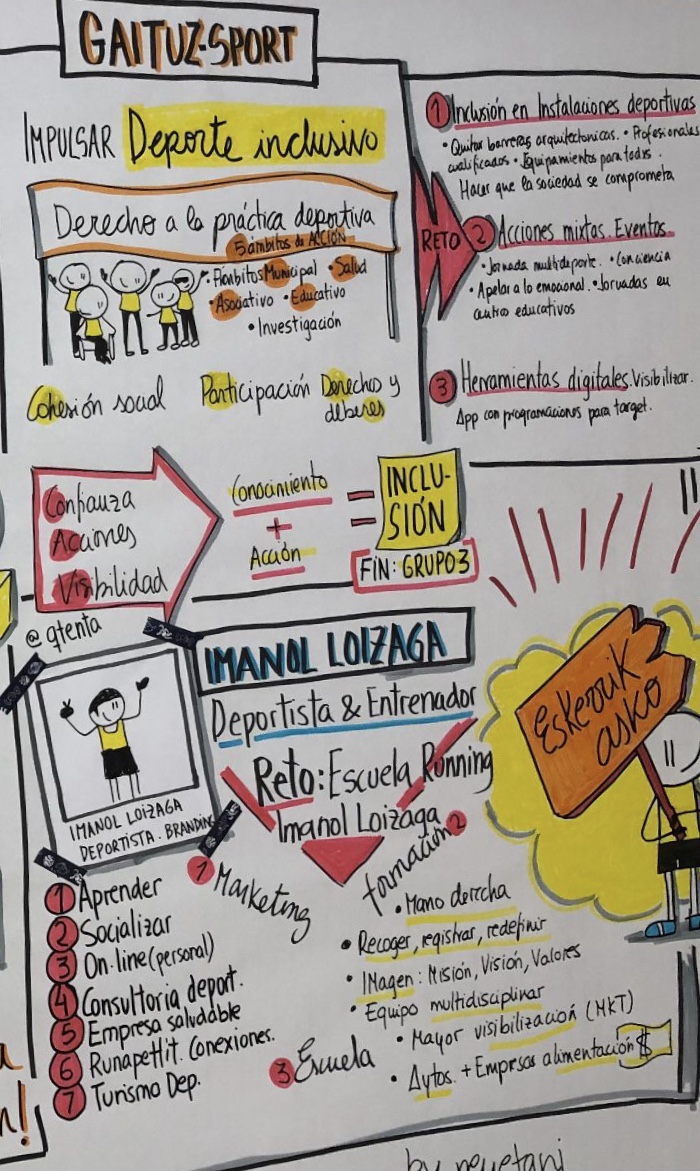 GAITUZ-SPORT
IMPULSAR Deporte inclusivo
Derecho a la práctica deportiva
5 ámbitos de ACCIÓN
Municipal • Salud
• Asociativo • Educativo
• Investigación
Cohesión social
Participación
Derechos y
deberes
RETO
1 Inclusión en Instalaciones deportivas
• Quitar barreras arquitectonicas. • Profesionales
cualificados • Equipamientos para todxs.
Hacer que la sociedad se comprometa
2 Acciones mixtas. Eventos
• Jornada multideporte. • Conciencia
• Apelar a lo emocional. • Jornadas en
centros educativos
3 Herramientas digitales. Visibilizar.
App con programaciones para target.
Confianza
Acciones
Visibilidad
Conocimiento
+
Acción
=
INCLU-
SIÓN
FIN: GRUPO 3
@qtenta
IMANOL LOIZAGA
DEPORTISTA. BRANDING
IMANOL LOIZAGA
Deportista & Entrenador
Reto: Escuela Running
Imanol Loizaga
Eskerrik
asko
1 Aprender
2 Socializar
3 On-line (personal)
4 Consultoria deport.
5 Empresa saludable
6 Runapettit. Conexiones.
7 Turismo Dep.
1 Marketing
formación 2
3 Escuela
• Mano derecha
• Recoger, registrar, redefinir
• IMagen: Misión, Visión, Valores
• Equipo multidisciplinar
• Mayor visibilización (MKT)
• Aytos. + Empresas alimentación $
n!